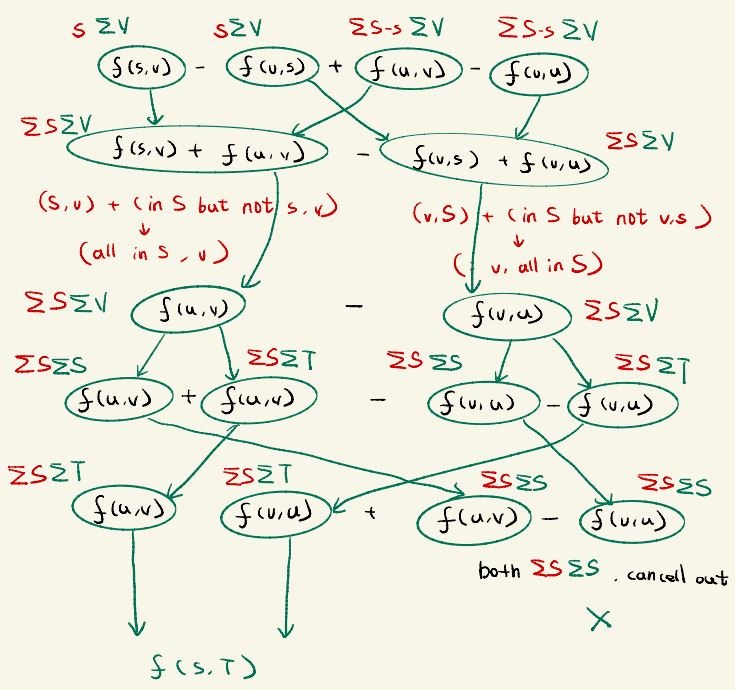 s ΣV sΣV ΣS-s ΣV ΣS-s ΣV
f(s,v) - f(v,s) + f(u,v) - f(v,u)
ΣSΣV ΣSΣV
f(s,v) + f(u,v) - f(v,s) + f(v,u)
(S,v) + (in S but not s,v) (v,S) + (in S but not v,s)
↓ ↓
(all in S, v) ( v, all in S)
ΣSΣV f(u,v) - f(v,u) ΣSΣV
ΣSΣS ΣSΣT ΣSΣS ΣSΣT
f(u,v) + f(u,v) - f(v,u) - f(v,u)
ΣSΣT ΣSΣT ΣSΣS ΣSΣS
f(u,v) f(v,u) + f(u,v) - f(v,u)
both ΣSΣS, cancell out
X
f(S,T)